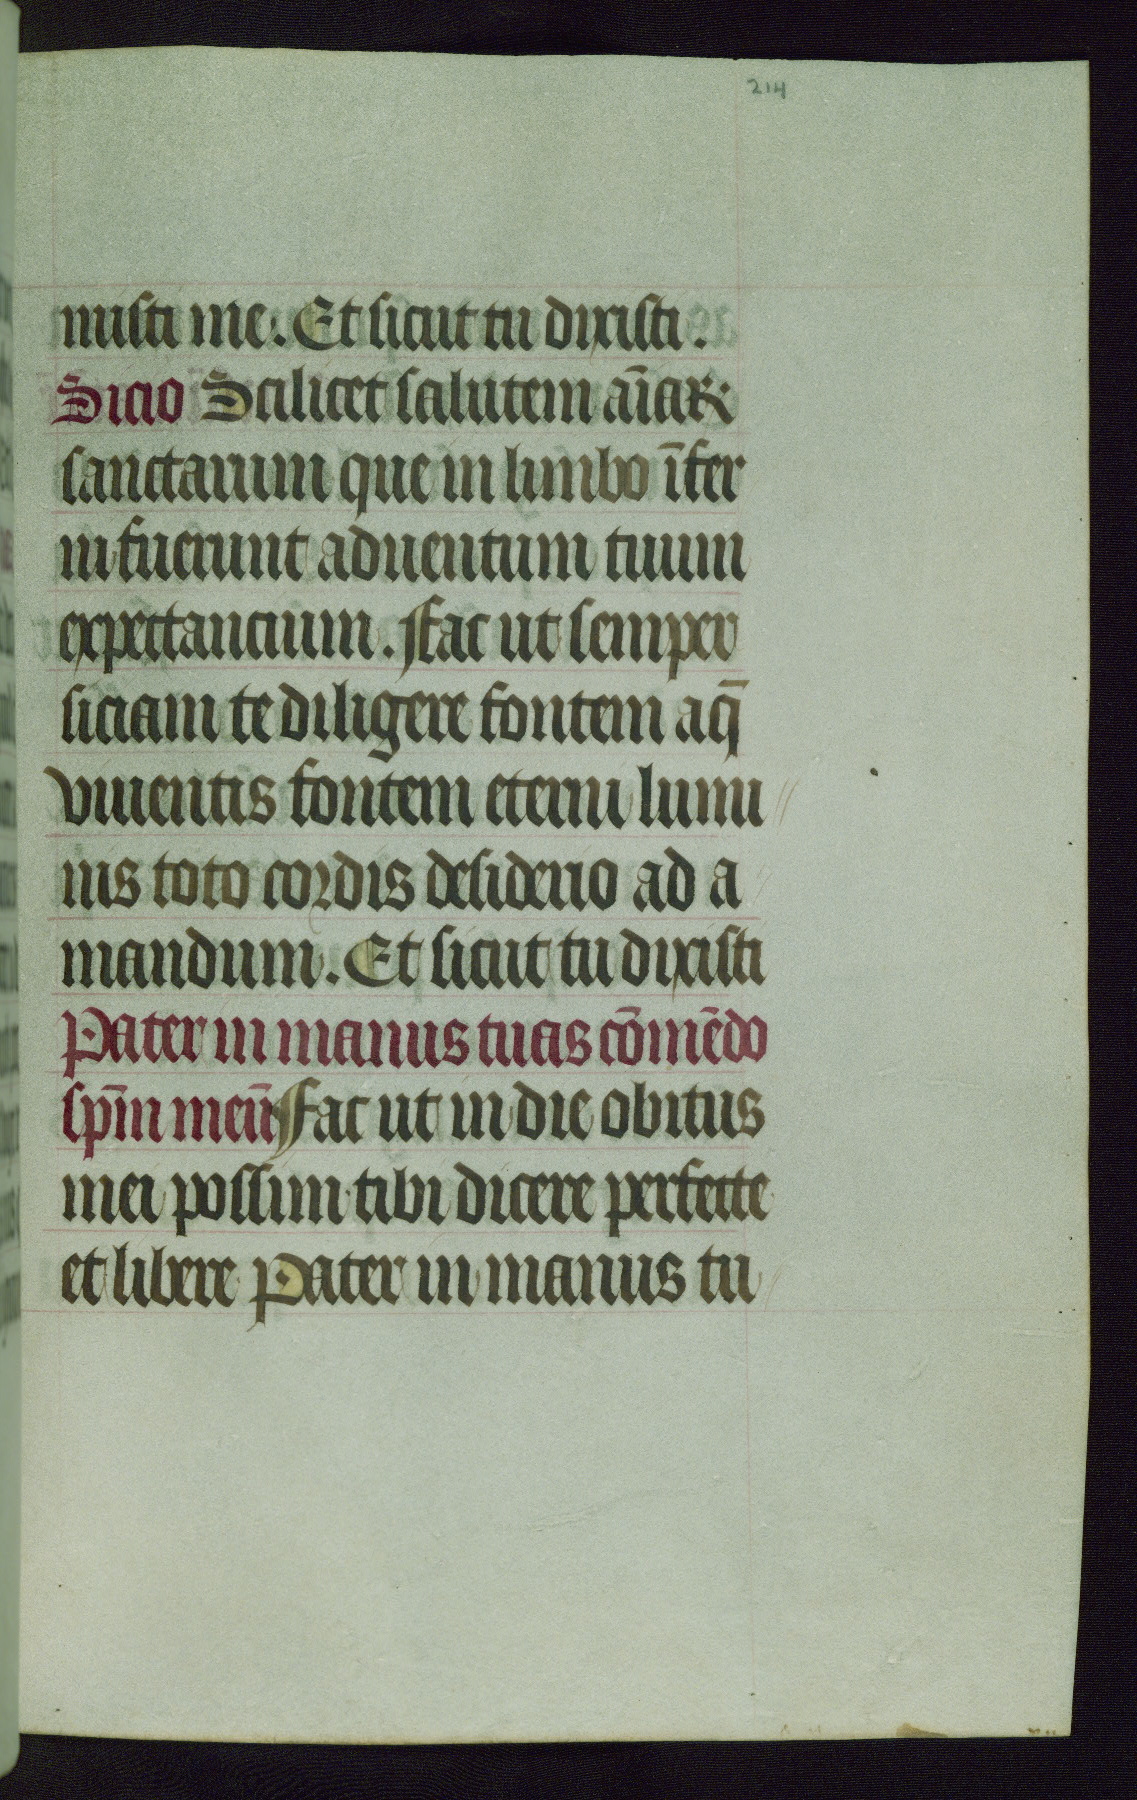 214
nisti me. Et sicut tu dixisti.
Sicio Scilicet salutem aīaꝝ
sanctarum que in limbo īfer
ni fuerunt aduentum tuum
expectancium. Fac ut semper
siciam te diligere fontem aq̄
viuentis fontem eterni lumi
nis toto cordis desiderio ad a
mandum. Et sicut tu dixisti
Pater in manus tuas cōmēdo
sp̄m meū Fac ut in die obitus
mei possim tibi dicere perfecte
et libere Pater in manus tu